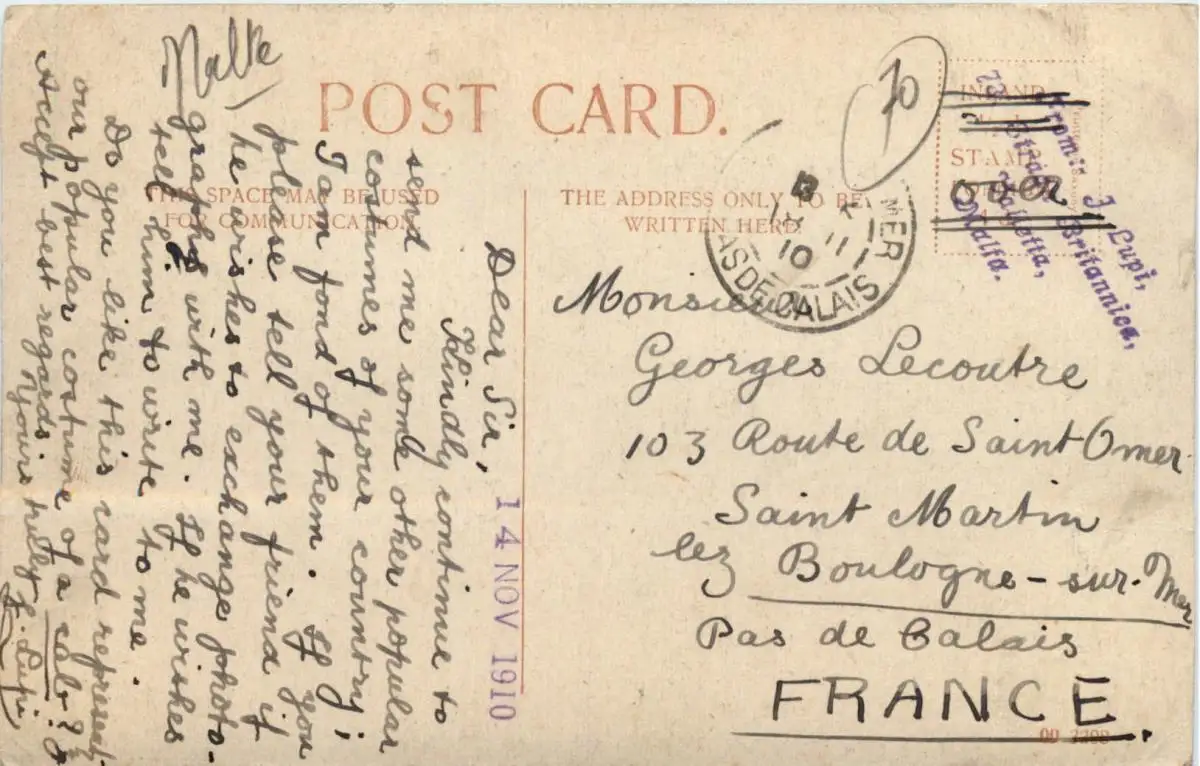 Malte
POST CARD.
THIS SPACE MAY BE USED
FOR COMMUNICATION
THE ADDRESS ONLY TO BE
WRITTEN HERE
INLAND
STAMP
70
From: J. Lupi,
23 Strada Britannica,
Valletta,
Malta.
MER
PAS DE CALAIS
11
10
14 NOV 1910
Dear Sir,
Kindly continue to
send me some other popular
costumes of your country;
I am fond of them. If you
please tell your friend if
he wishes to exchange photo-
graphs with me. If he wishes
tell him to write to me.
Do you like this card represent-
our popular costume of a
Accept best regards.
Yours truly J. Lupi
Monsieur
Georges Lecoutre
103 Route de Saint Omer
Saint Martin
lez Boulogne-sur-Mer
Pas de Calais
FRANCE.